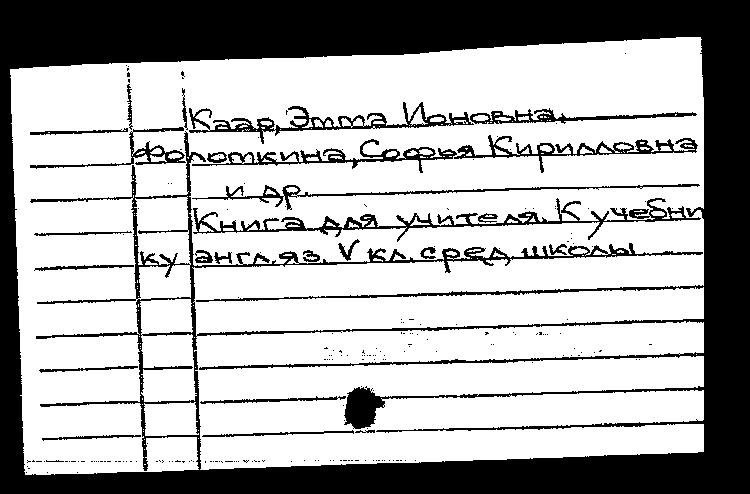 Каар, Этта Ионовна,
Фолоткина, Софья Кирилловна
и др.
Книга для учителя. К учебни
ку англ. яз. V кл. сред. школы